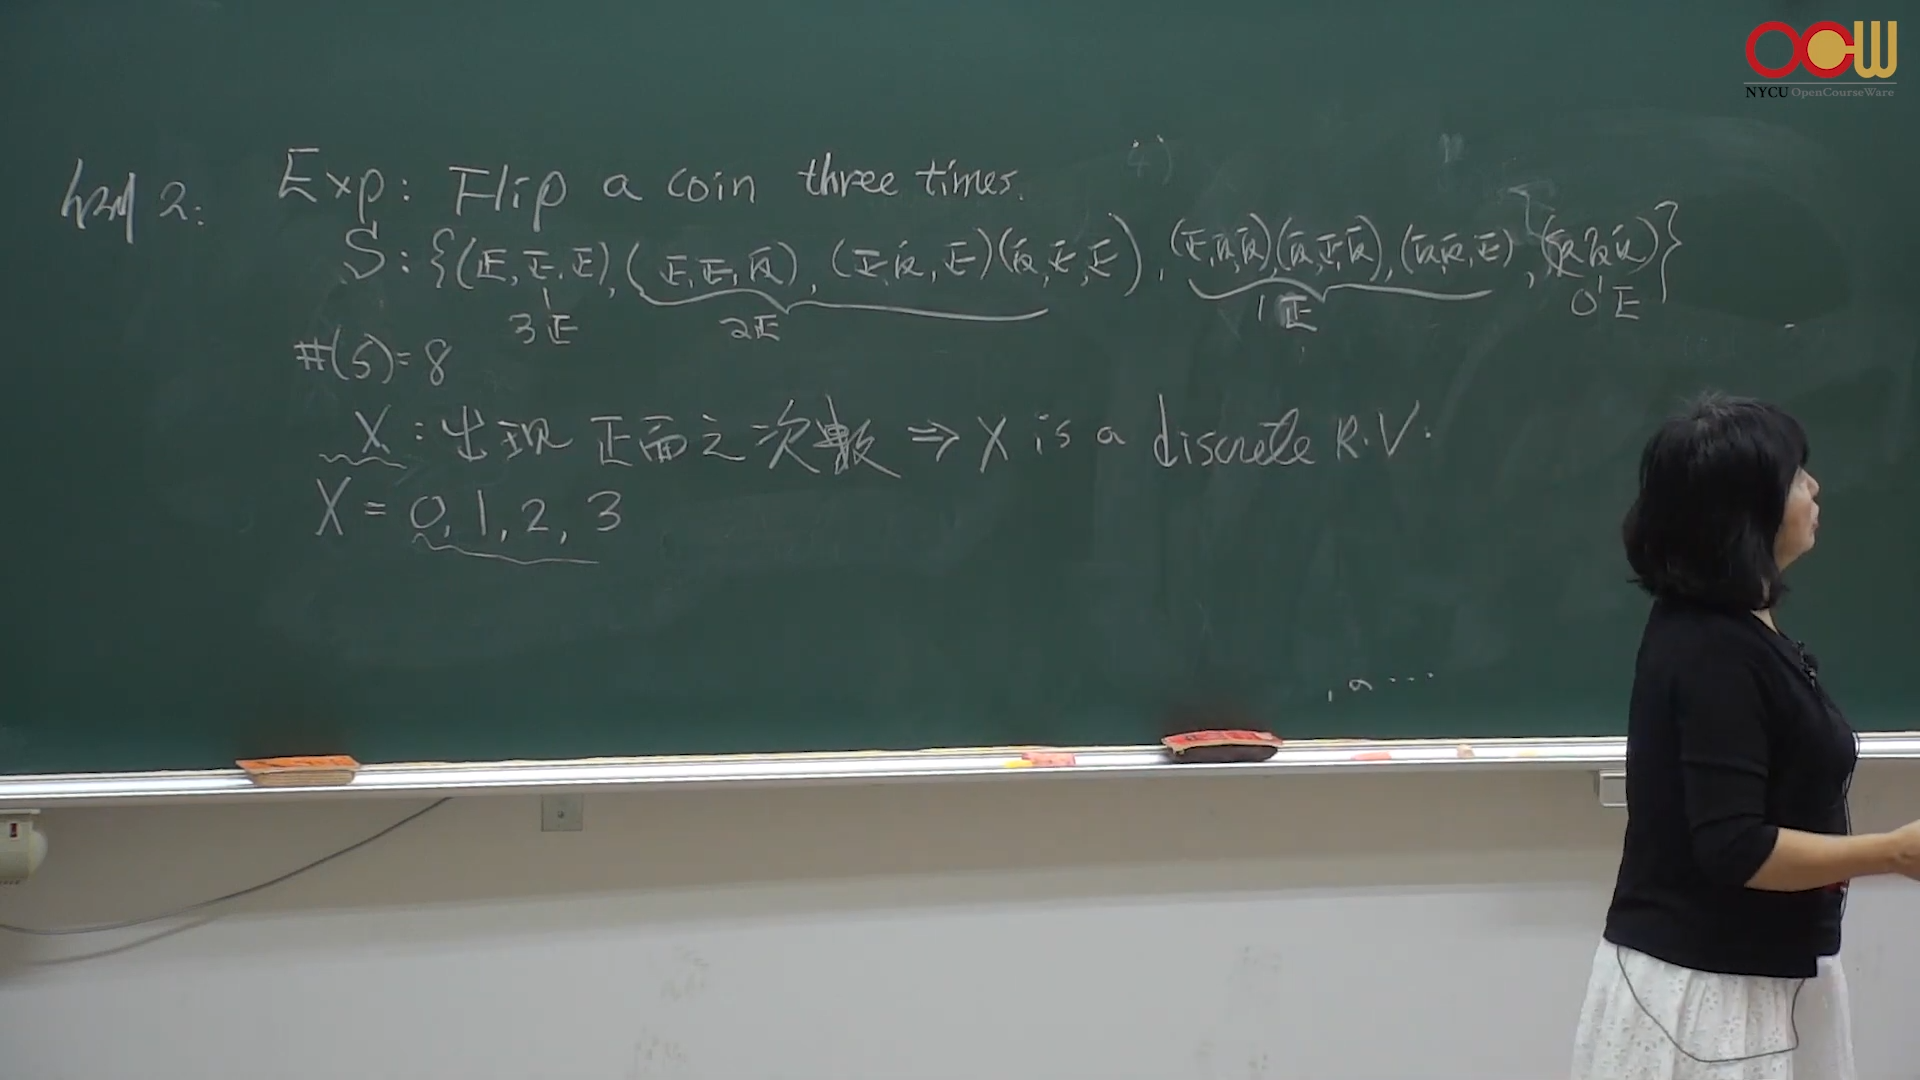 OCW
NYCU OpenCourseWare
例2: Exp: Flip a coin three times.
S: {(正,正,正), (正,正,反), (正,反,正)(反,正,正), (正,反,反)(反,正,反), (反,反,正), (反,反,反)}
3正 2正 1正 0正
#(S)=8
X: 出現正面之次數 ⇒ X is a discrete R.V.
X = 0, 1, 2, 3